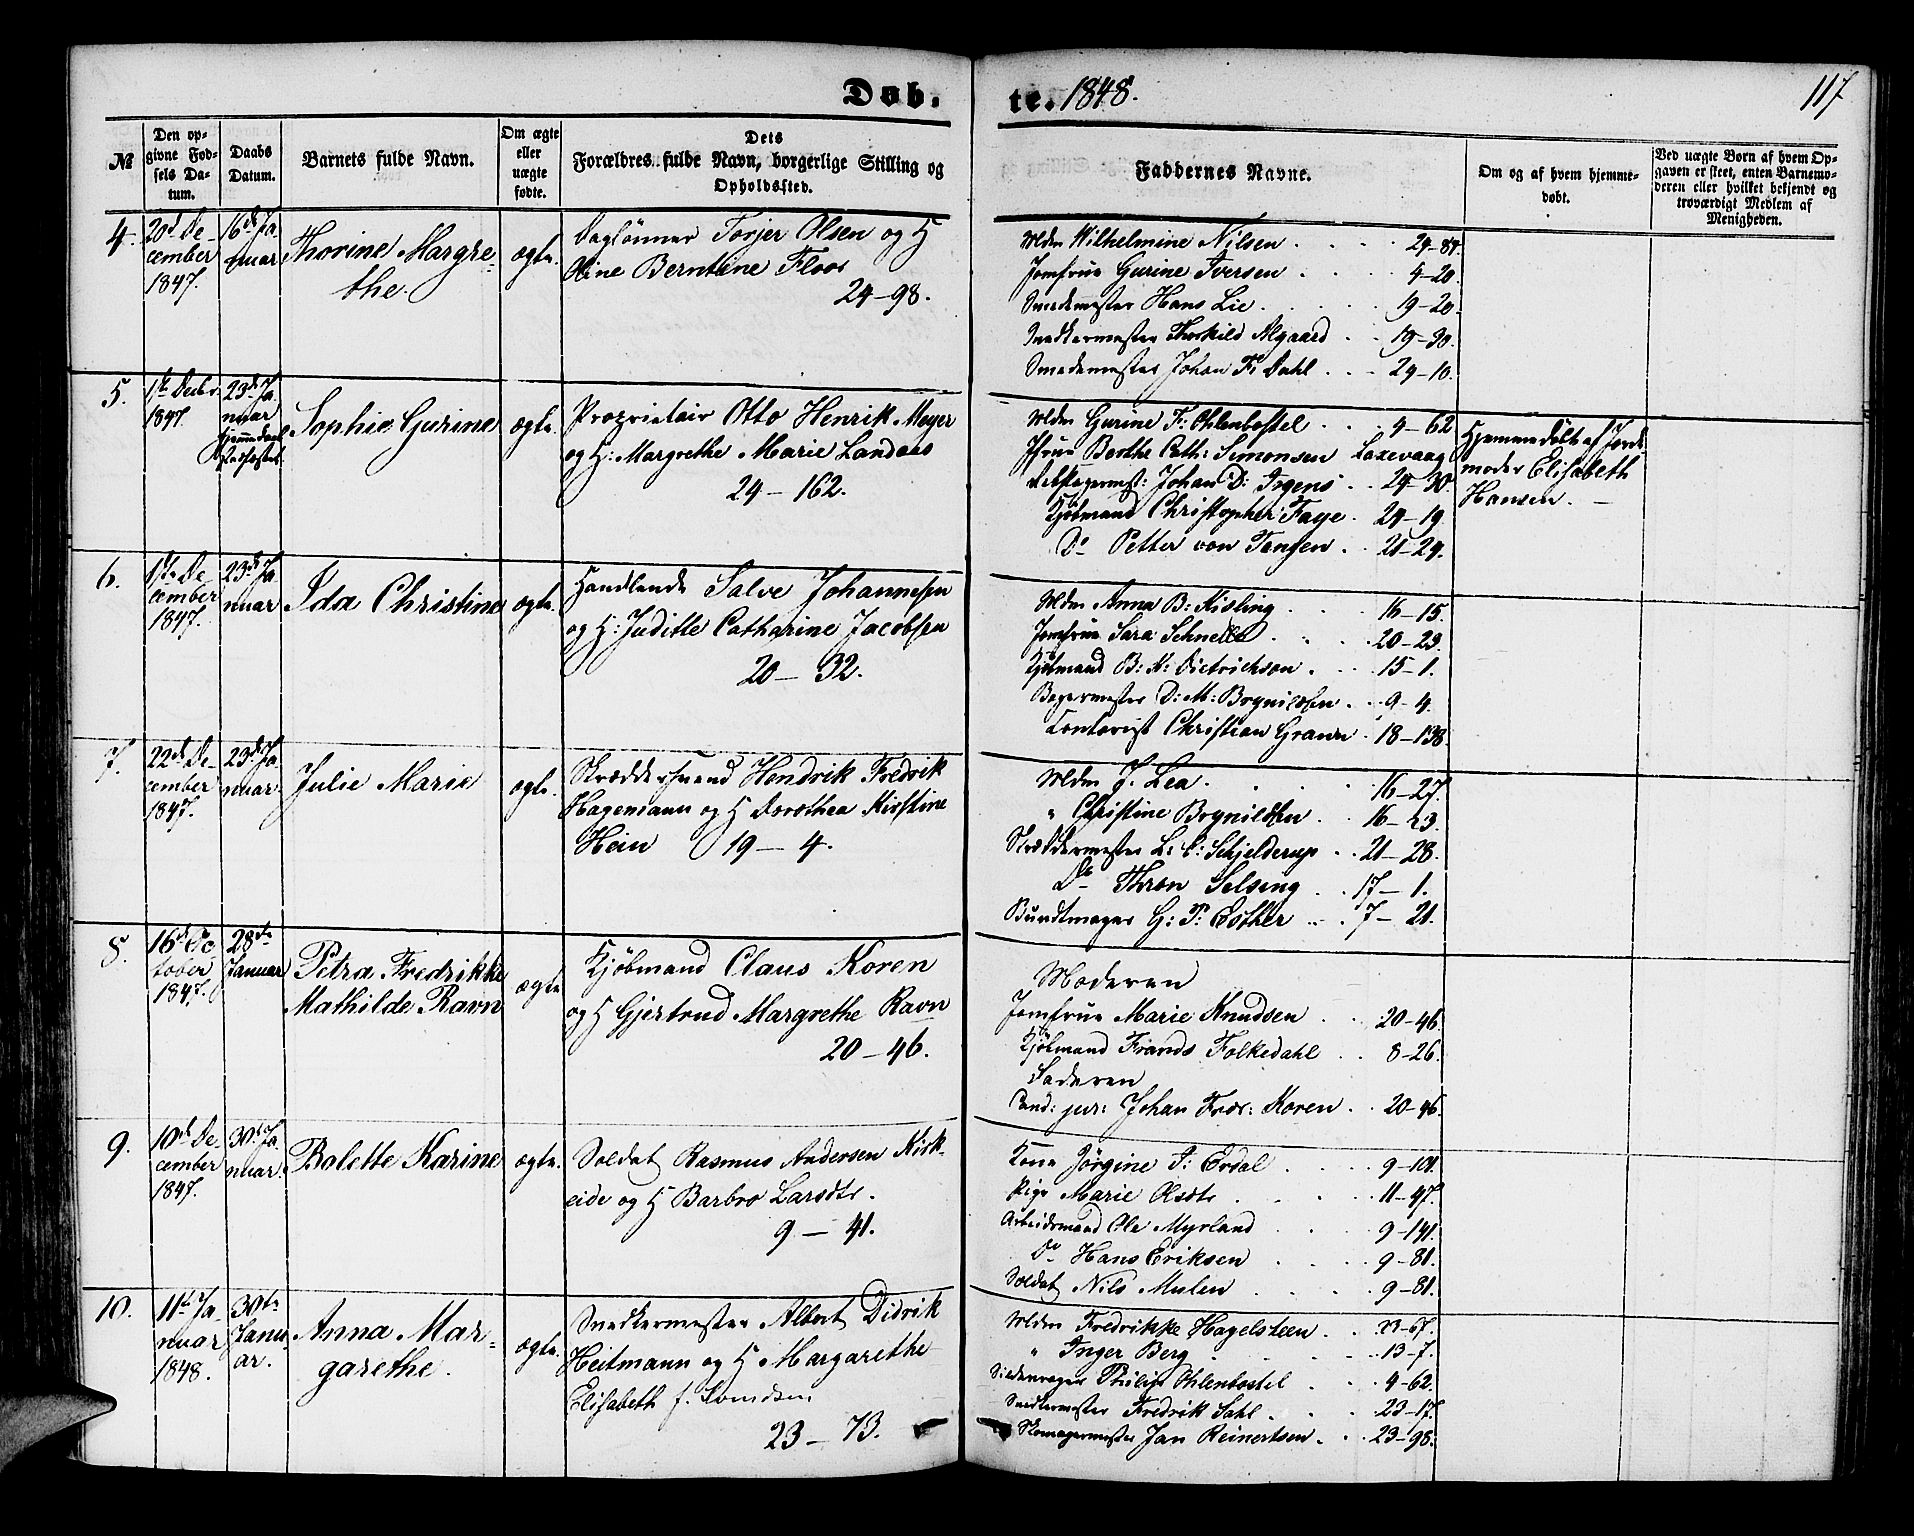 Døb. te. 1848. 117
№
Den op-
givne Fød-
sels Da-
tum.
Daabs
Datum.
Barnets fulde Navn.
Om ægte
eller
uægte
fødte.
Dets
Forældres fulde Navn, borgerlige Stilling og
Opholdssted.
Faddernes Navne.
Om og af hvem hjemme-
døbt.
Ved uægte Børn af hvem Op-
gaven er skeet, enten Barnemo-
deren eller hvilket bekjendt og
troværdigt Medlem af
Menigheden.
4.
20d De-
cember
1847.
16d Ja
nuar
Thorine Margre-
the.
ægte.
Daglønner Torjer Olsen og H
Oline Berntine Floor
24-98.
Mdm Wilhelmine Nilsen . . . . 24-84.
Jomfrue Gurine Iversen . . . 4-20.
Smedemester Hans Lie . . . . 19-20.
Snedkermester Thorkild Algaard . . 19-30.
Smedemester Johan F. Dahl . . . 24-10.
5.
1ste Decbr.
1847.
23d Ja
nuar
Hjemmedaab
Stadfæstet.
Sophie Gurine
ægte.
Proprietair Otto Henrik Meyer
og H: Margrethe Marie Landaas
24 - 162.
Mdm Gurine F: Ohlenbostel . . . 4-62
Jfrue Berthe Cath: Simonsen Laxevaag
Rebslagermest: Johan D: Irgens . . 24-30.
Kjøbmand Christopher Faye . 24-19.
Do Petter von Tangen . . 21-24.
Hjemmedøbt af Jorde
moder Elisabeth
Hansen. -
6.
1ste De-
cember
1847.
23d Ja
nuar
Ida Christine
ægte.
Handlende Salve Johannesen
og H: Juditte Catharine Jacobsen
20 - 32.
Mdm Anna B: Kisling . . . . 16-15.
Jomfrue Sara Schnelle . . . 20-23.
Kjøbmand B: K: Dietrichson . . . 15-1.
Bagermester D: M: Bognildsen . . 9-4.
Contorist Christian Grann . 18-138.
7.
22d De-
cember
1847.
23d Ja
nuar.
Julie Marie
ægte.
Skrædersvend Hendrik Fredrik
Hagemann og H Dorothea Kirstine
Hein 19 - 4.
Mdm J. Lea . . . . . 16-27.
" Christine Bognildsen . . 16-23.
Skræddermester L: C: Schjelderup . . 21-28.
Do Thron Selsing . . . 17-1.
Bundtmager G: P: Esther . . . 7-21.
8.
16d Oc
tober
1847.
28de
Januar
Petra Fredrikke
Mathilde Ravn
ægte
Kjøbmand Claus Koren
og H Gjertrud Margrethe Ravn
20-46.
Moderen
Jomfrue Marie Knudsen . . . 20-46.
Kjøbmand Frands Folkedahl . . 8-26.
Faderen
Cand: jur: Johan Fredr: Koren . . 20-46.
9.
10d De
cember
1847.
30d Ja
nuar.
Bolette Karine
ægte.
Soldat Rasmus Andersen Kirk-
eide og H Barbro Larsdtr.
9 - 41.
Kone Jørgine P: Erdal . . . . 9-101.
Pige Marie Olsdtr . . . . 11-97.
Arbeidsmand Ole Myrland . . . 9-141.
Do Hans Eriksen . . . . 9-81.
Soldat Nils Mulen . . . . 9-81.
10.
11te Ja
nuar
1848.
30te
Janu
ar.
Anna Mar-
garethe.
ægte.
Snedkermester Albert Didrik
Heitmann og H Margarethe
Elisabeth f. Svendsen
23 - 73.
Mdm Fredrikke Hagelsteen . . 23-67.
" Inger Berg . . . . . 13-7.
Philip Ohlenbostel . . . 4-62.
Snedkermester Fredrik Dahl . . . 23-17.
Skomagermester Jan Reinertsen . . 23-98.